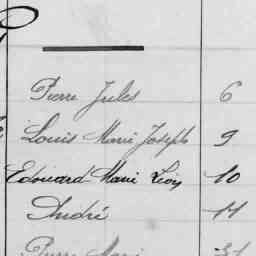 Pierre Jules 6
Louis Marie Joseph 9
Edouard Marie Léon 10
André 11
Pierre Marie 31